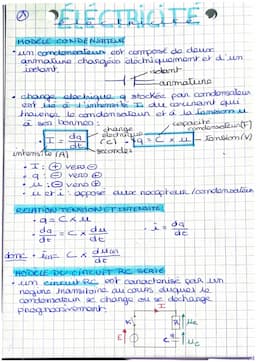 ÉLECTRICITÉ
MODÈLE CONDENSATEUR
• un condensateur est composé de deux
armature chargées électriquement et d'un
isolant.
isolant
armature
• charge électrique q stockée par condensateur
est lié à l'intensité I du courant qui
traverse le condensateur et à la tension u
à ses bornes :
charge
électrique
(C)
capacité
condensateur (F)
I = dq/dt
q = C × u
tension (V)
intensité (A)
secondes
• I : ⊕ vers ⊖
• q : ⊖ vers ⊕
• u : ⊖ vers ⊕
• u et i : opposé aux récepteur/condensateur
RELATION TENSION ET INTENSITÉ
• q = C × u
dq/dt = C × du/dt
• i = dq/dt
donc
MODÈLE DU CIRCUIT RC SÉRIE
• un circuit RC est caractérisé par un
régime transitoire au cours duquel le
condensateur se charge ou se décharge
progressivement.
I
K
R
E
C